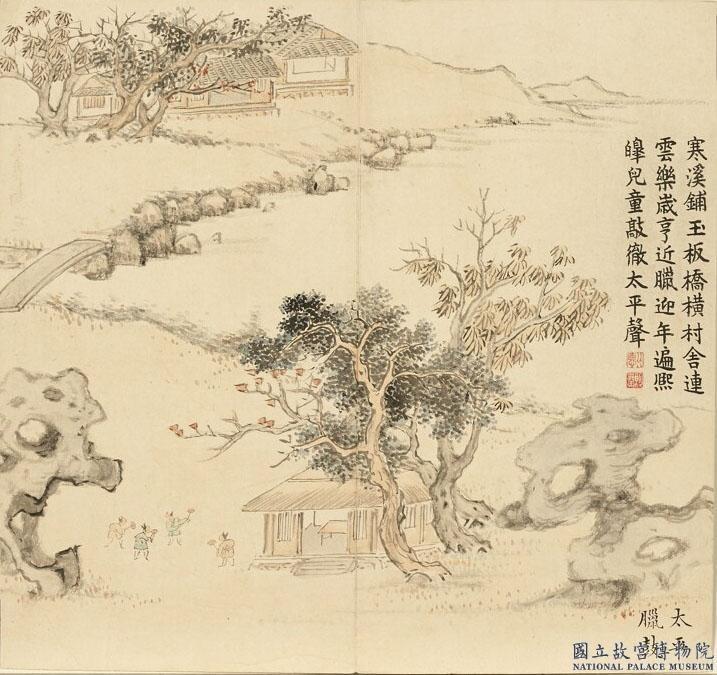 寒溪鋪玉板橋橫村舍連
雲樂歲亨近臘迎年遍熙
皞兒童敲徹太平聲
太平
臘鼓
國立故宮博物院
NATIONAL PALACE MUSEUM